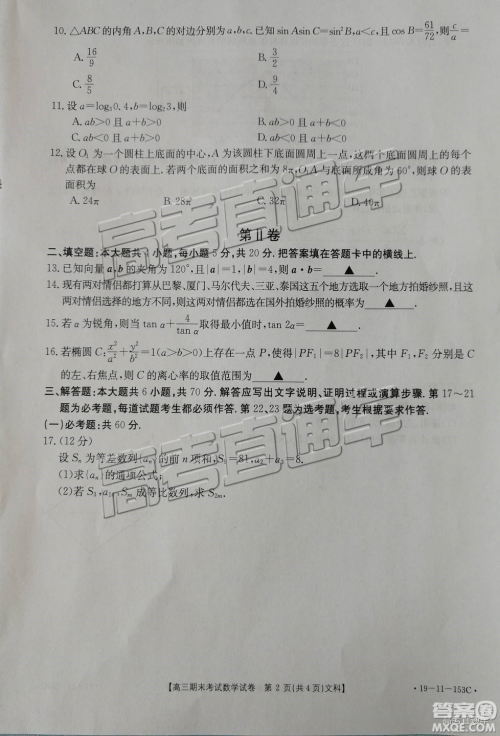 10. △ABC的内角A,B,C的对边分别为a,b,c.已知sin Asin C=sin²B,a<c,且cos B=61/72,则c/a=
A. 16/9 B. 3/2
C. 8/5 D. 9/4
11. 设a=log₃0.4,b=log₂3,则
A. ab>0且a+b>0 B. ab<0且a+b>0
C. ab>0且a+b<0 D. ab<0且a+b<0
12. 设O₁为一个圆柱上底面的中心,A为该圆柱下底面圆周上一点,这两个底面圆周上的每个
点都在球O的表面上.若两个底面的面积之和为8π,O₁A与底面所成角为60°,则球O的表
面积为
A. 24π B. 28π C. 32π D. 40π
第Ⅱ卷
二、填空题:本大题共4小题,每小题5分,共20分.把答案填在答题卡中的横线上.
13. 已知向量a,b的夹角为120°,且|a|=1,|b|=4,则a·b= ▲ .
14. 现有两对情侣都打算从巴黎、厦门、马尔代夫、三亚、泰国这五个地方选取一个地方拍婚纱照,且这
两对情侣选择的地方不同,则这两对情侣都选在国外拍婚纱照的概率为 ▲ .
15. 若α为锐角,则当tan α+4/tan α取得最小值时,tan 2α= ▲ .
16. 若椭圆C:x²/a²+y²/b²=1(a>b>0)上存在一点P,使得|PF₁|=8|PF₂|,其中F₁,F₂分别
是C的左、右焦点,则C的离心率的取值范围为 ▲ .
三、解答题:本大题共6小题,共70分.解答应写出文字说明、证明过程或演算步骤.第17~21
题为必考题,每道试题考生都必须作答.第22、23题为选考题,考生根据要求作答.
(一)必考题:共60分.
17. (12分)
设Sₙ为等差数列{aₙ}的前n项和,S₉=81,a₂+a₃=8.
(1)求{aₙ}的通项公式;
(2)若S₃,a₁₄,Sₘ成等比数列,求S₂ₘ.
高考直通车
高考直通车
【高三期末考试数学试卷 第2页(共4页)文科】
·19-11-153C·